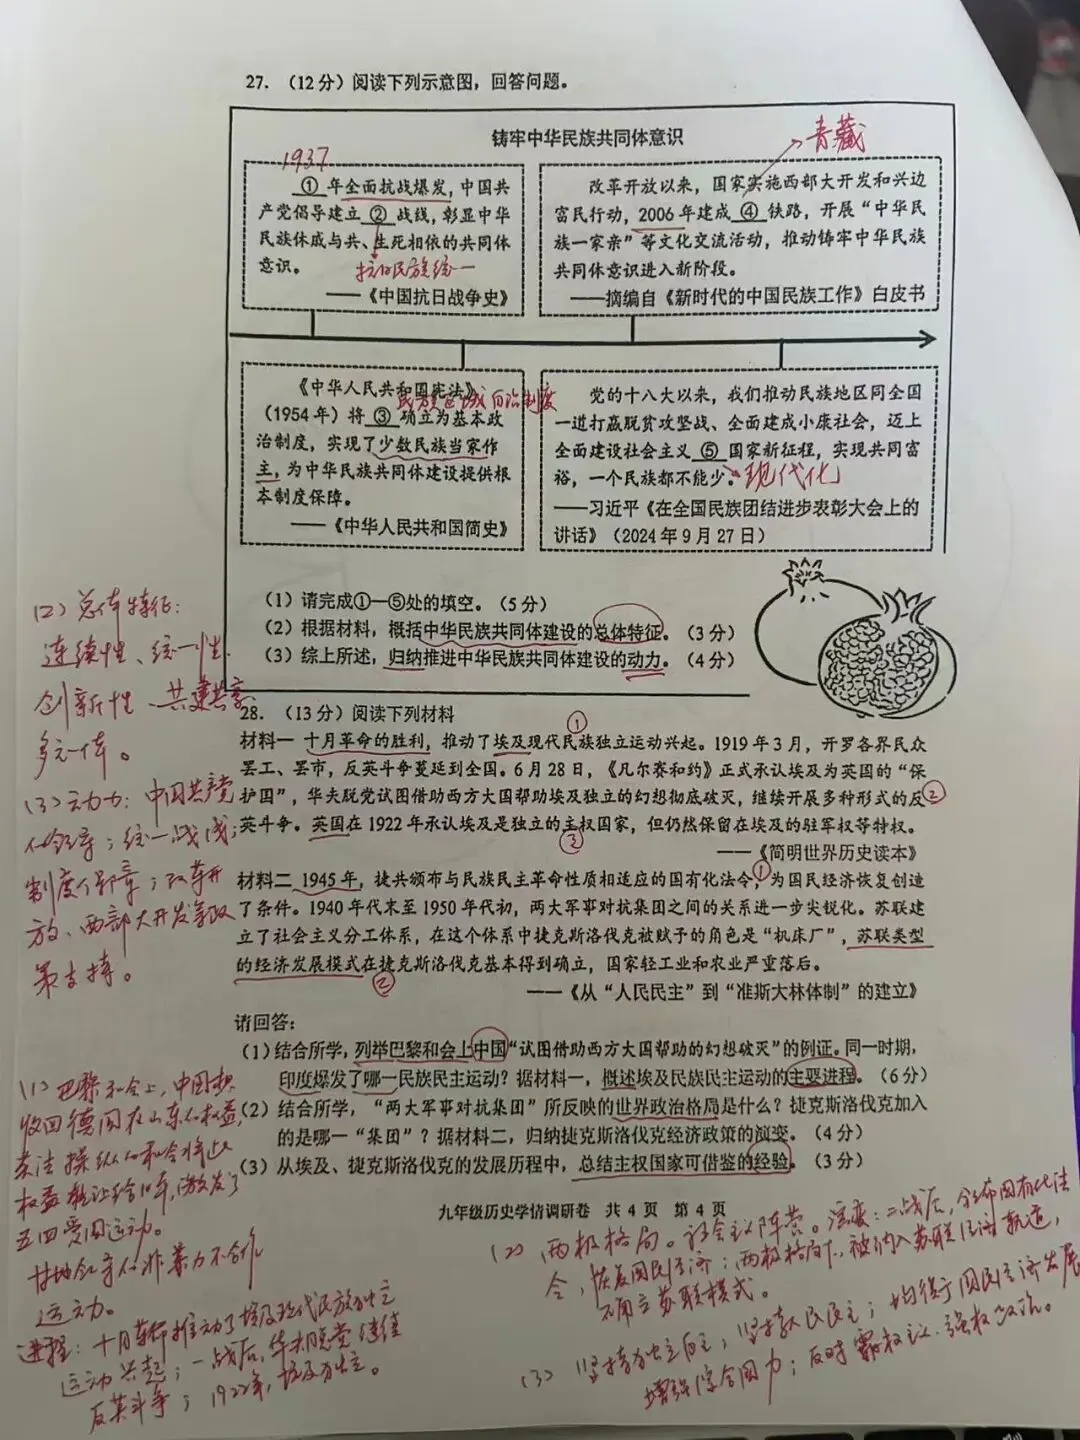 27. （12分）阅读下列示意图，回答问题。
铸牢中华民族共同体意识
青藏
1937
① 年全面抗战爆发，中国共
产党倡导建立 ② 战线，彰显中华
民族休戚与共、生死相依的共同体
意识。
抗日民族统一
——《中国抗日战争史》
改革开放以来，国家实施西部大开发和兴边
富民行动，2006年建成 ④ 铁路，开展“中华民
族一家亲”等文化交流活动，推动铸牢中华民族
共同体意识进入新阶段。
——摘编自《新时代的中国民族工作》白皮书
《中华人民共和国宪法》
民族区域自治制度
（1954年）将 ③ 确立为基本政
治制度，实现了少数民族当家作
主，为中华民族共同体建设提供根
本制度保障。
——《中华人民共和国简史》
党的十八大以来，我们推动民族地区同全国
一道打赢脱贫攻坚战、全面建成小康社会，迈上
全面建设社会主义 ⑤ 国家新征程，实现共同富
裕，一个民族都不能少。
现代化
——习近平《在全国民族团结进步表彰大会上的
讲话》（2024年9月27日）
（1）请完成①—⑤处的填空。（5分）
（2）根据材料，概括中华民族共同体建设的总体特征。（3分）
（3）综上所述，归纳推进中华民族共同体建设的动力。（4分）
（2）总体特征：
连续性、统一性、
创新性、共建共享、
多元一体。
（3）动力：中国共产党
领导；统一战线；
制度保障；改革开
放、西部大开发等政
策支持。
28. （13分）阅读下列材料
①
材料一 十月革命的胜利，推动了埃及现代民族独立运动兴起。1919年3月，开罗各界民众
罢工、罢市，反英斗争蔓延到全国。6月28日，《凡尔赛和约》正式承认埃及为英国的“保
护国”，华夫脱党试图借助西方大国帮助埃及独立的幻想彻底破灭，继续开展多种形式的反
②
英斗争。英国在1922年承认埃及是独立的主权国家，但仍然保留在埃及的驻军权等特权。
③
——《简明世界历史读本》
①
材料二 1945年，捷共颁布与民族民主革命性质相适应的国有化法令，为国民经济恢复创造
了条件。1940年代末至1950年代初，两大军事对抗集团之间的关系进一步尖锐化。苏联建
立了社会主义分工体系，在这个体系中捷克斯洛伐克被赋予的角色是“机床厂”，苏联类型
的经济发展模式在捷克斯洛伐克基本得到确立，国家轻工业和农业严重落后。
②
——《从“人民民主”到“准斯大林体制”的建立》
请回答：
（1）结合所学，列举巴黎和会上中国“试图借助西方大国帮助的幻想破灭”的例证。同一时期，
印度爆发了哪一民族民主运动？据材料一，概述埃及民族民主运动的主要进程。（6分）
（2）结合所学，“两大军事对抗集团”所反映的世界政治格局是什么？捷克斯洛伐克加入
的是哪一“集团”？据材料二，归纳捷克斯洛伐克经济政策的演变。（4分）
（3）从埃及、捷克斯洛伐克的发展历程中，总结主权国家可借鉴的经验。（3分）
九年级历史学情调研卷 共4页 第4页
（1）巴黎和会上，中国想
收回德国在山东的权益，
英法操纵的和会将此
权益转让给日本，激发了
五四爱国运动。
甘地领导的非暴力不合作
运动。
进程：十月革命推动了埃及现代民族独立
运动兴起；一战后，华夫脱党继续
反英斗争；1922年，埃及独立。
（2）两极格局。社会主义阵营。演变：二战后，颁布国有化法
令，恢复国民经济；两极格局下，被纳入苏联经济轨道，
确立苏联模式。
（3）坚持独立自主；坚持人民民主；均衡于国民经济发展
增强综合国力；反对霸权主义、强权政治。